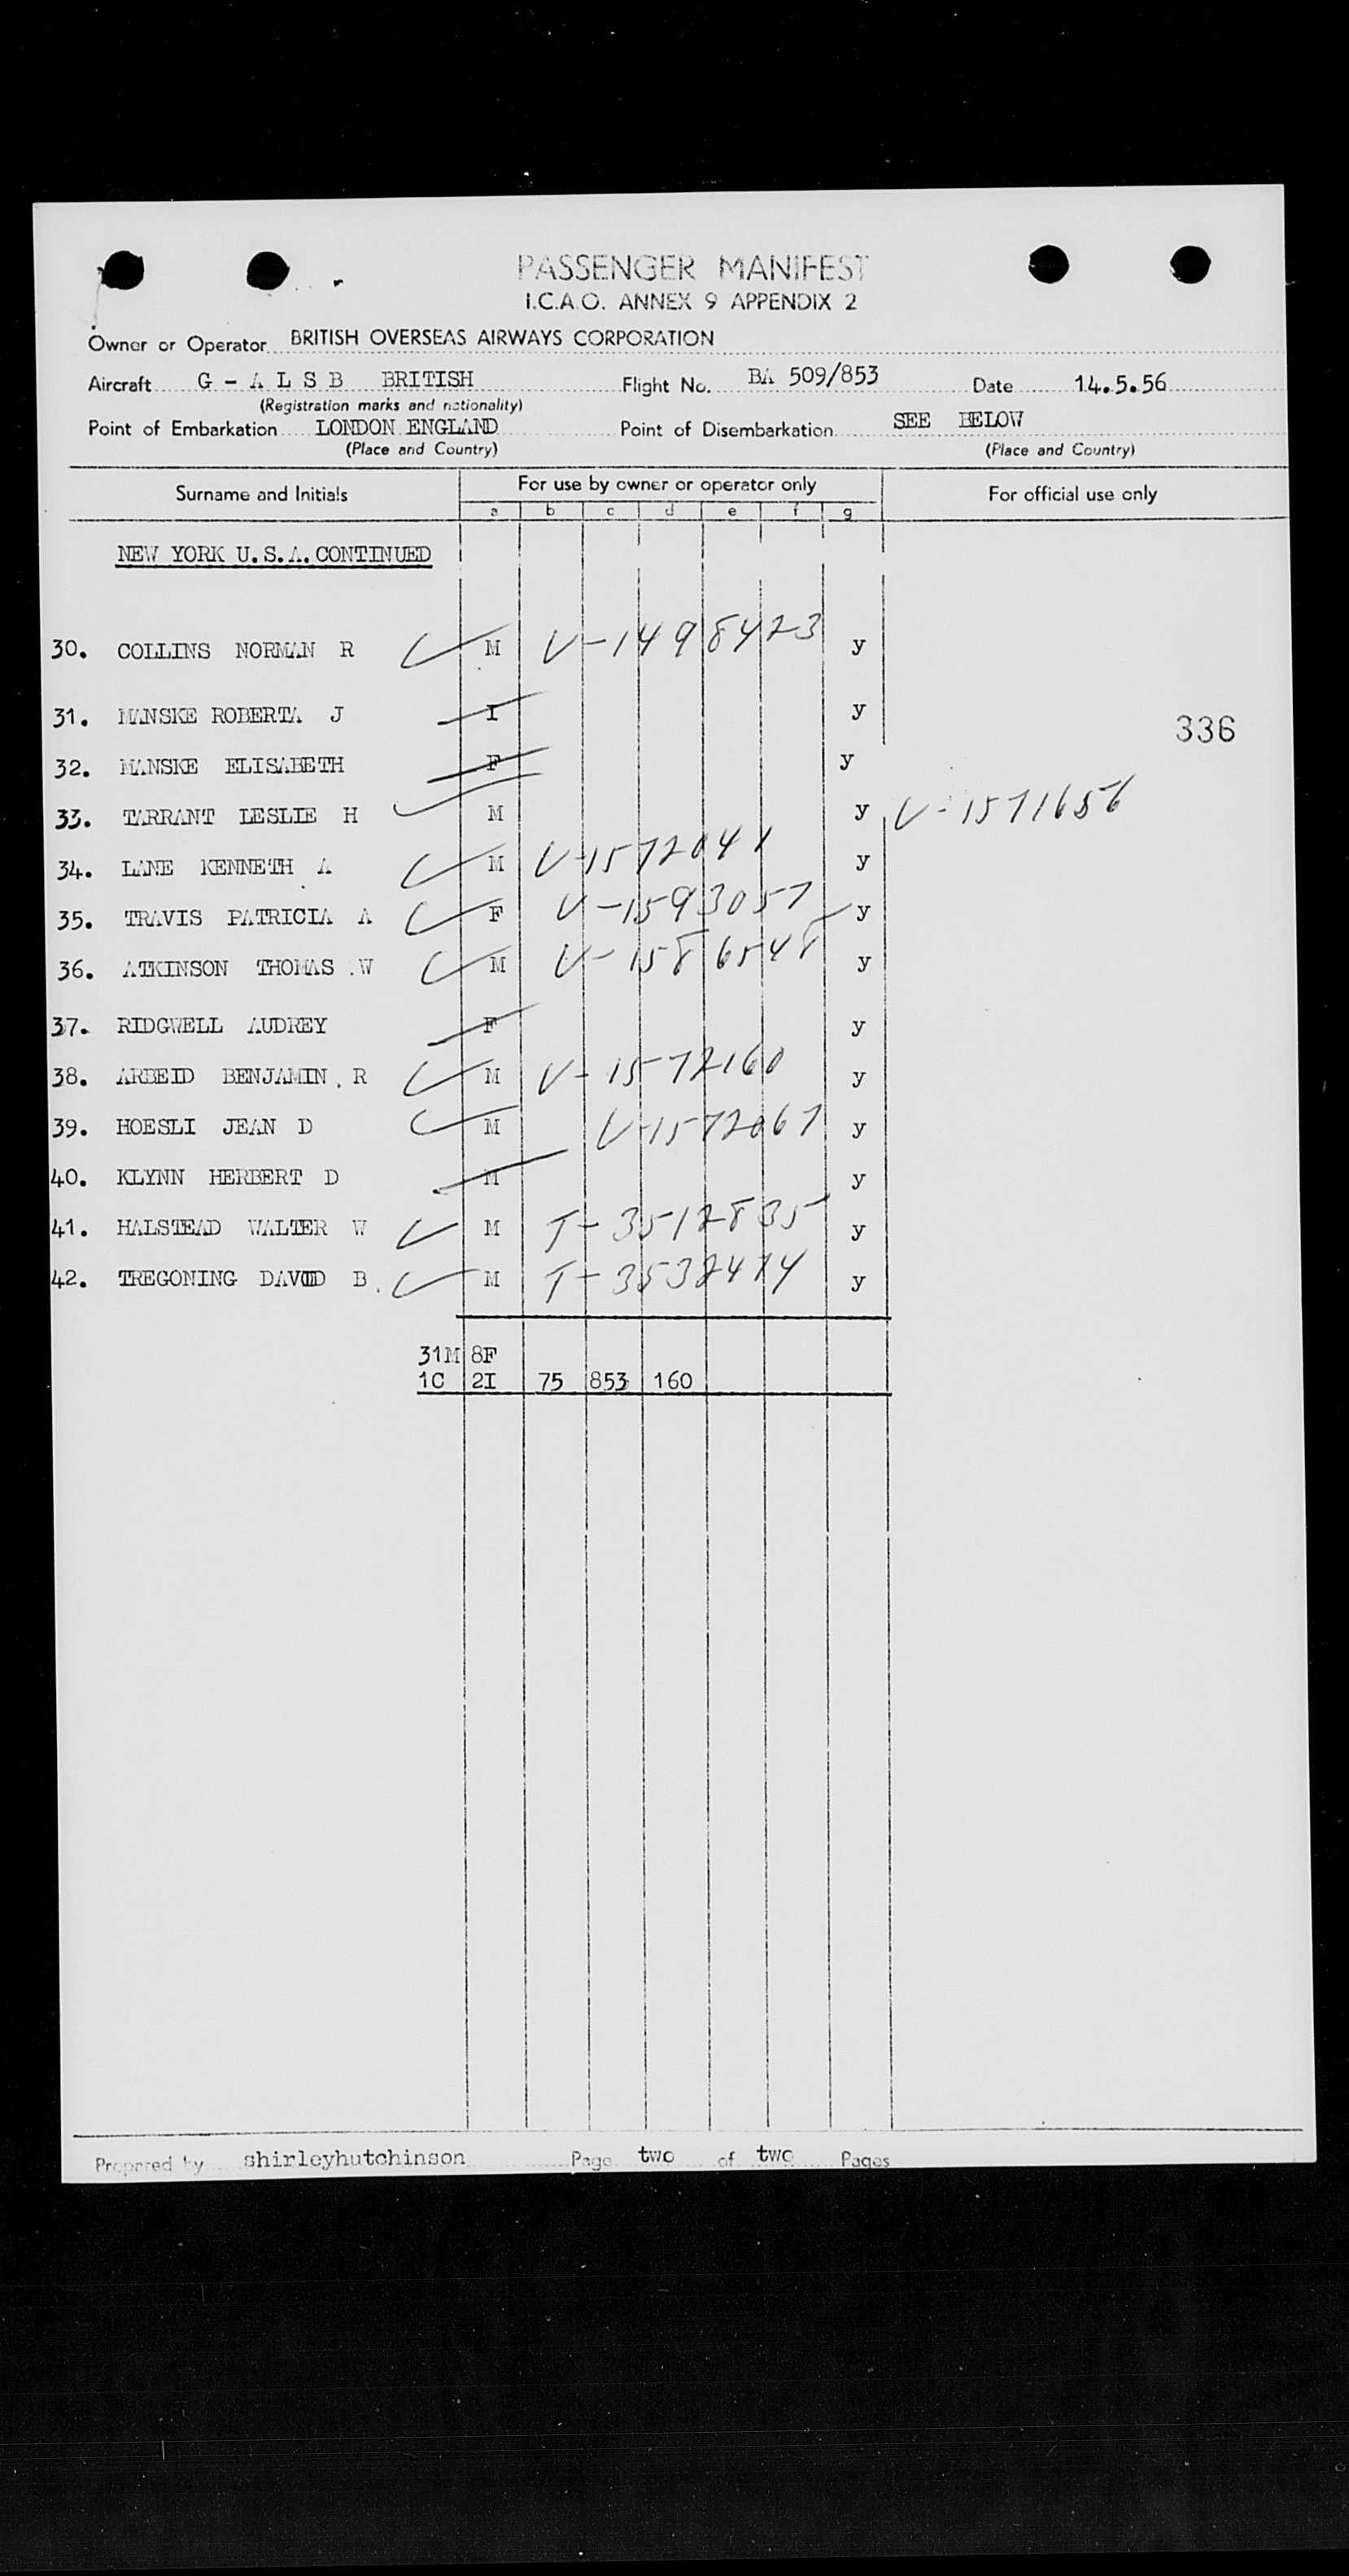 PASSENGER MANIFEST
I.C.A.O. ANNEX 9 APPENDIX 2
Owner or Operator BRITISH OVERSEAS AIRWAYS CORPORATION
Aircraft G - A L S B BRITISH Flight No. BA 509/853 Date 14.5.56
(Registration marks and nationality)
Point of Embarkation LONDON ENGLAND Point of Disembarkation SEE BELOW
(Place and Country) (Place and Country)
Surname and Initials For use by owner or operator only For official use only
a b c d e f g
NEW YORK U.S.A. CONTINUED
30. COLLINS NORMAN R M V-1498423 y
31. MANSKE ROBERTA J I y
336
32. MANSKE ELISABETH F y
33. TARRANT LESLIE H M y V-1571656
34. LANE KENNETH A M V-1572041 y
35. TRAVIS PATRICIA A F V-1593057 y
36. ATKINSON THOMAS .W M V-1586548 y
37. RIDGWELL AUDREY F y
38. ARBEID BENJAMIN. R M V-1572160 y
39. HOESLI JEAN D M V-1572067 y
40. KLYNN HERBERT D M y
41. HALSTEAD WALTER W M T-3512835 y
42. TREGONING DAVID B. M T-3532474 y
31M 8F
1C 2I 75 853 160
Prepared by shirleyhutchinson Page two of two Pages